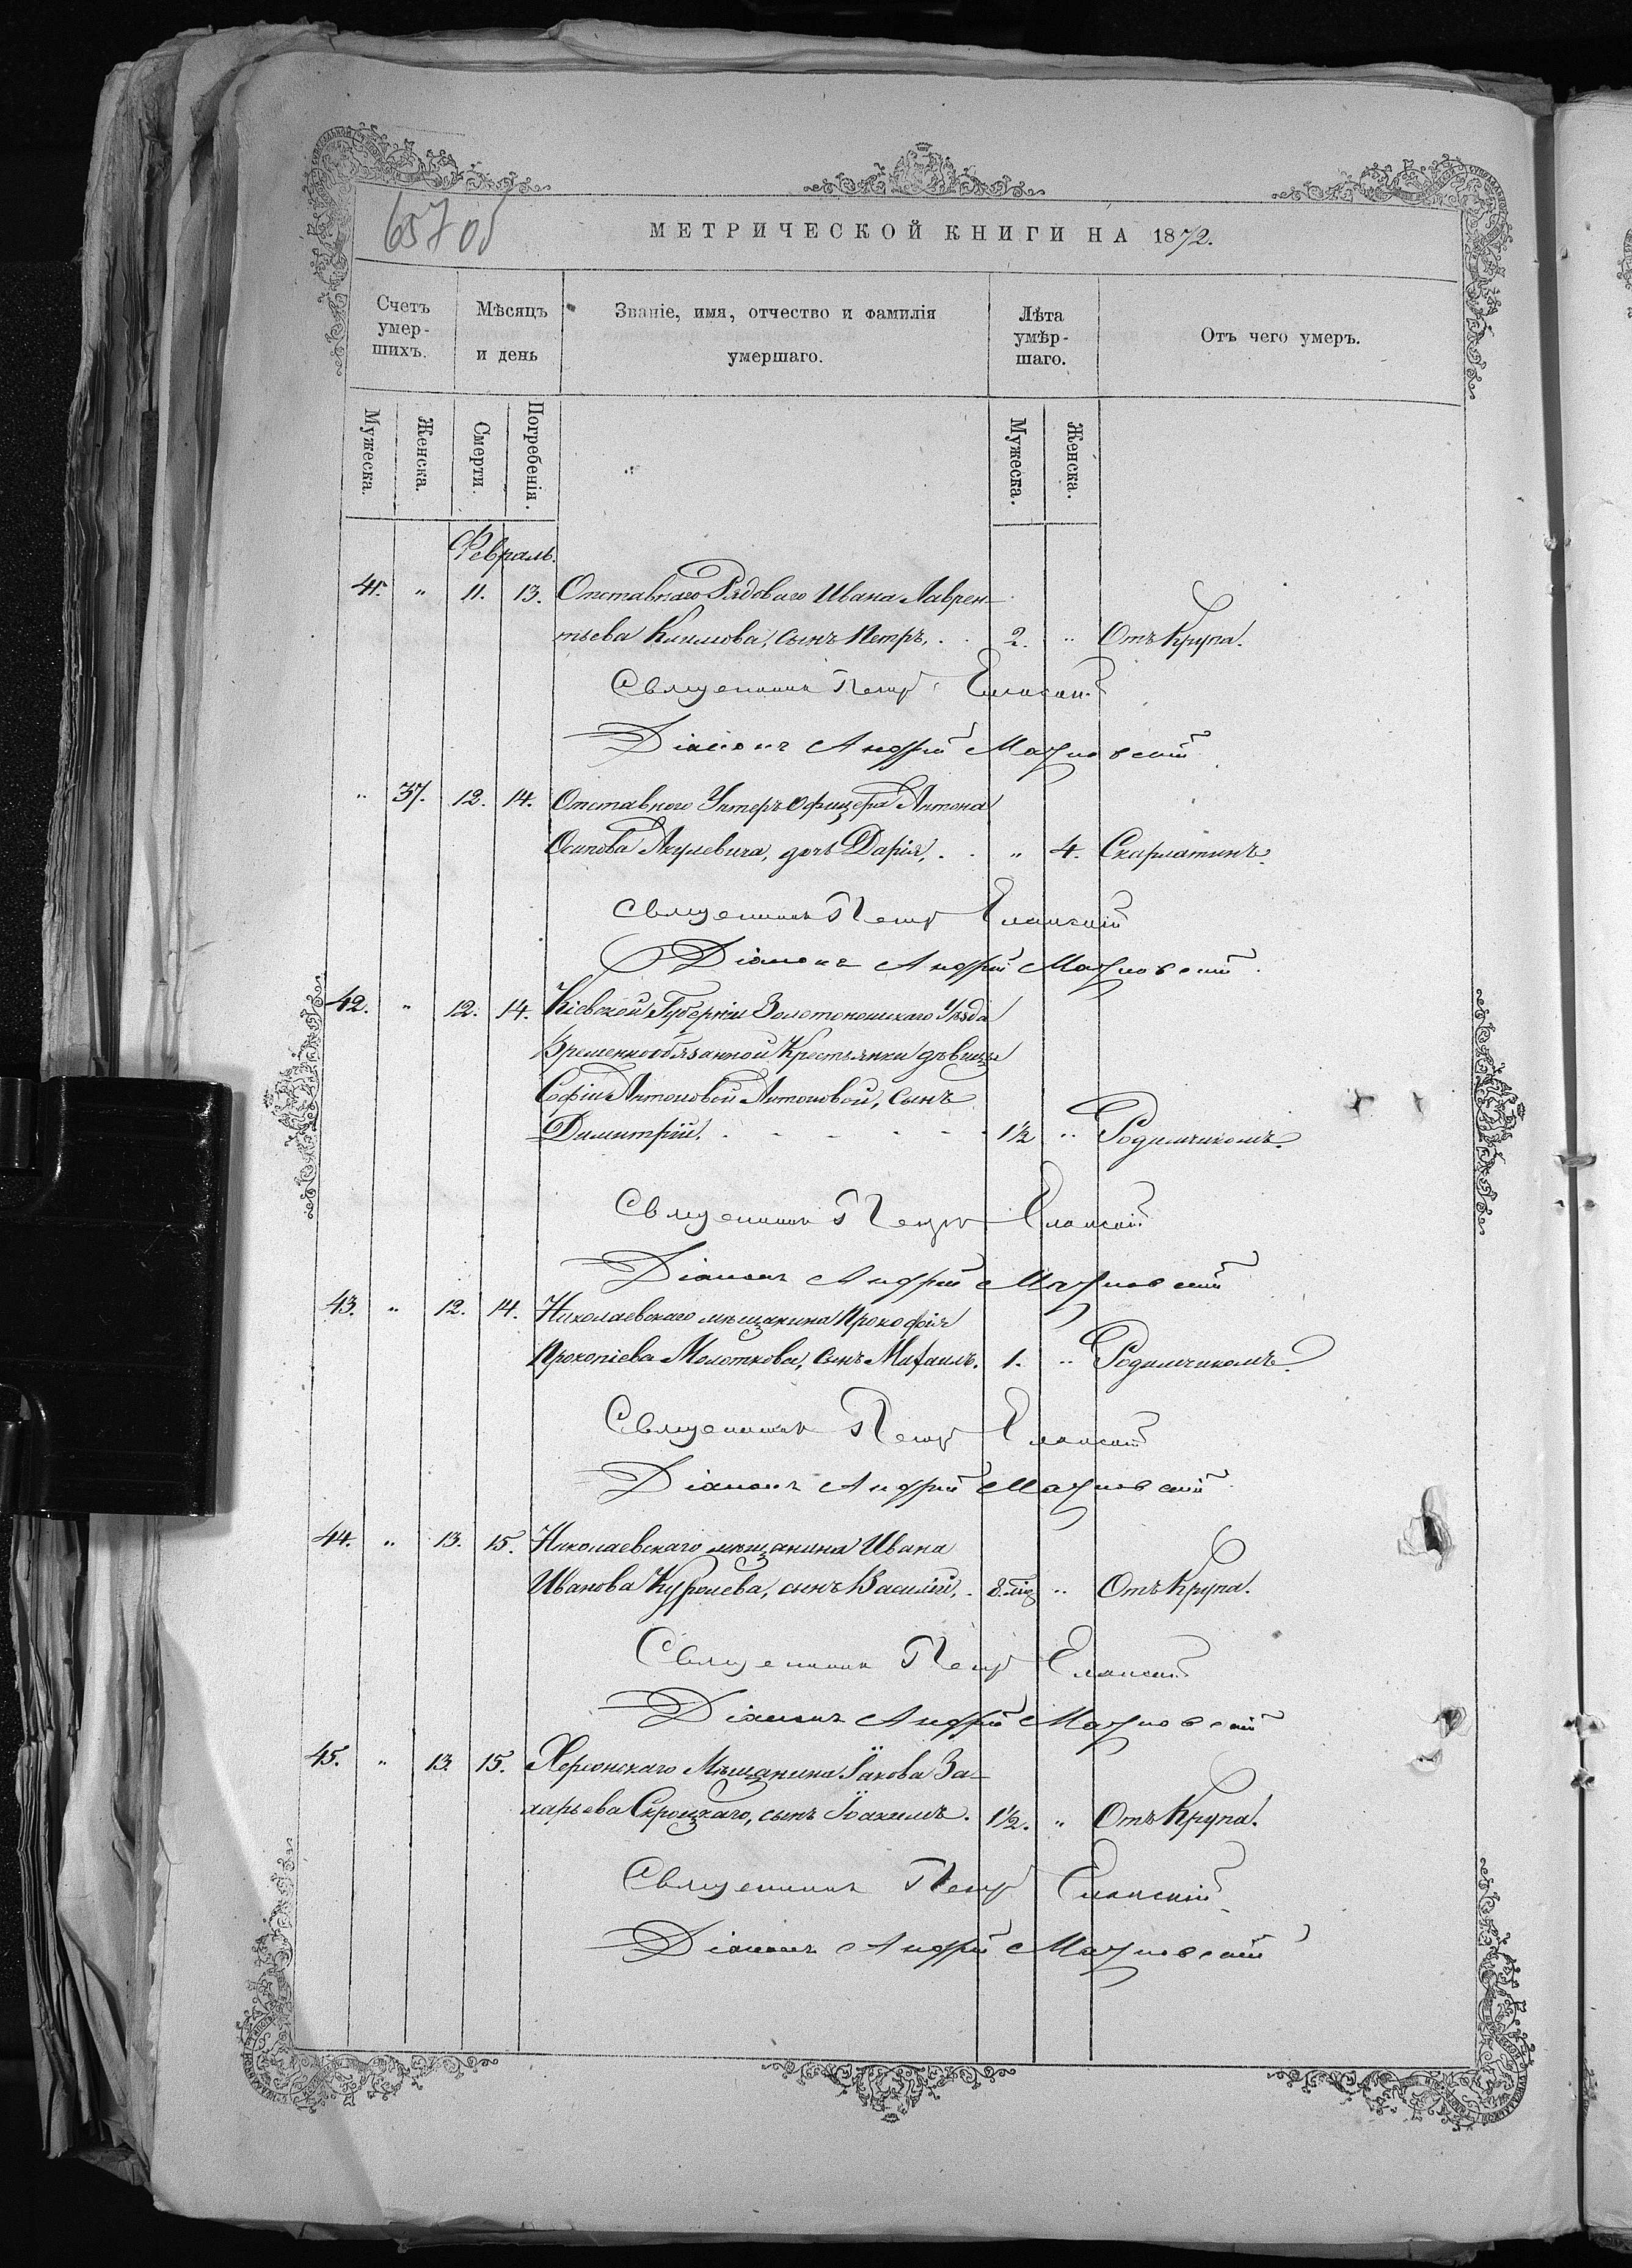 657 об
МЕТРИЧЕСКОЙ КНИГИ НА 1872.
Счетъ умер-шихъ.
Мѣсяцъ и день
Званіе, имя, отчество и фамилія умершаго.
Лѣта умѣр-шаго.
Отъ чего умеръ.
Мужеска. Женска. Смерти. Погребенія. Мужеска. Женска.
Февраль.
41. " 11. 13. Отставнаго Рядоваго Ивана Лаврен-
тьева сынъ Петръ, . . 2. " Отъ Крупа.
Священникъ Петръ Еланскій
Діаконъ Андрей
" 37. 12. 14. Отставного Унтеръ офицера Антона
Осипова Акулевича, дочь Дарія, . . " 4. Скарлатинъ.
Священникъ Петръ Еланскій
Діаконъ Андрей
42. " 12. 14. Кіевской Губерніи Золотоношскаго Уѣзда
Временнообязанной Крестьянки дѣвицы
Софіи Антоновой Антоновой, сынъ
Димитрій. . - - - - - 1½ " Родимчикомъ.
Священникъ Петръ Еланскій
Діаконъ Андрей
43. " 12. 14. Николаевскаго мѣщанина Прокофія
Прокопіева Молоткова, сынъ Михаилъ. 1. " Родимчикомъ.
Священникъ Петръ Еланскій
Діаконъ Андрей
44. " 13. 15. Николаевскаго мѣщанина Ивана
Иванова сынъ Василій, . 8. " Отъ Крупа.
Священникъ Петръ Еланскій
Діаконъ Андрей
45. " 13. 15. Херсонскаго Мѣщанина Іакова За-
харьева Скроцкаго, сынъ Іоакимъ. 1½. " Отъ Крупа.
Священникъ Петръ Еланскій
Діаконъ Андрей